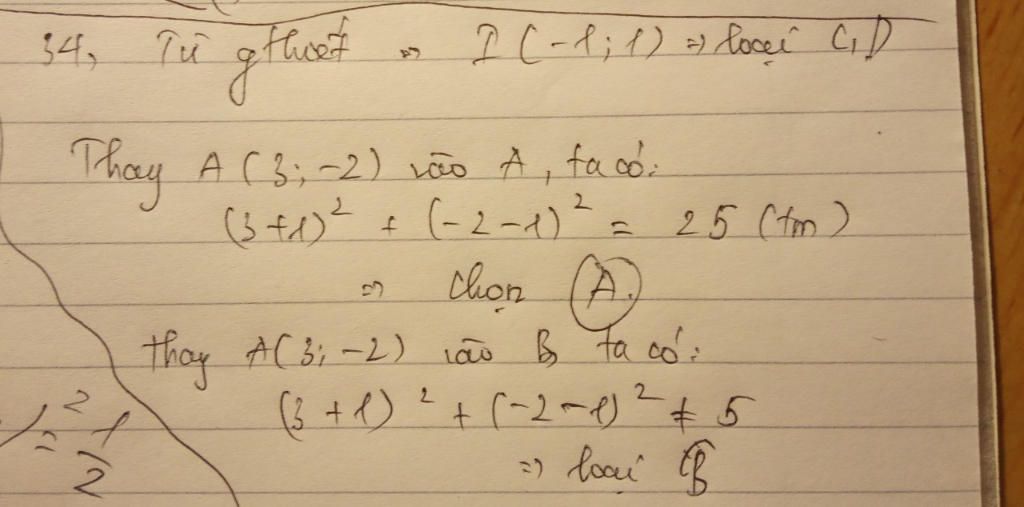 34, Từ gthuết => I (-1; 1) => loại C, D
Thay A (3; -2) vào A, ta có:
(3+1)² + (-2-1)² = 25 (tm)
=> Chọn A.
thay A(3; -2) vào B ta có:
(3 + 1)² + (-2-1)² ≠ 5
=> loại B
2
= 1/2